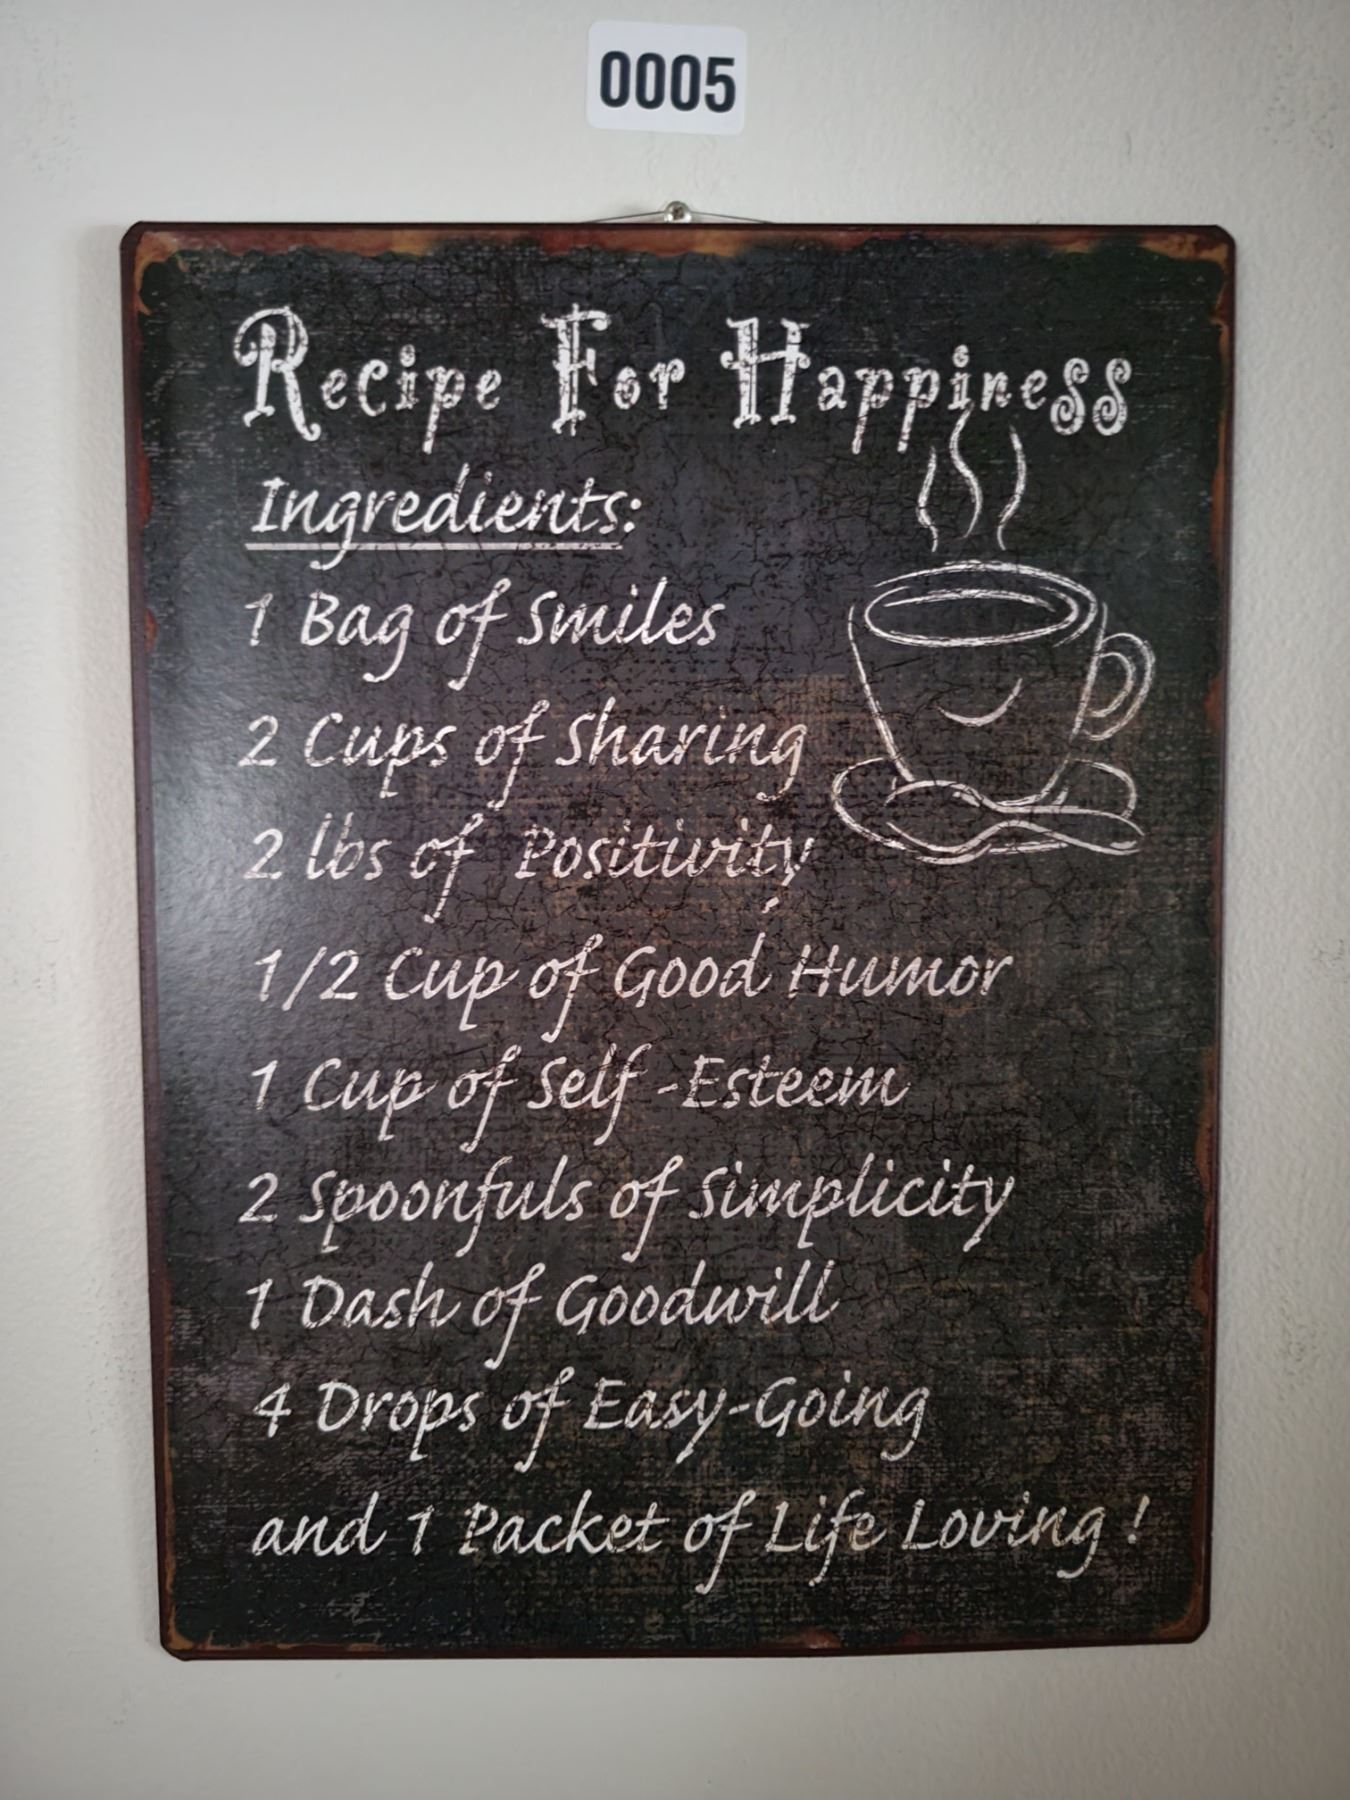 0005
Recipe For Happiness
Ingredients:
1 Bag of Smiles
2 Cups of Sharing
2 lbs of Positivity
1/2 Cup of Good Humor
1 Cup of Self-Esteem
2 Spoonfuls of Simplicity
1 Dash of Goodwill
4 Drops of Easy-Going
and 1 Packet of Life Loving!